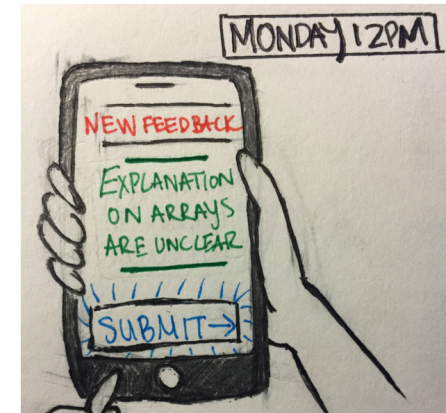 MONDAY 12PM
NEW FEEDBACK
EXPLANATION
ON ARRAYS
ARE UNCLEAR
SUBMIT→